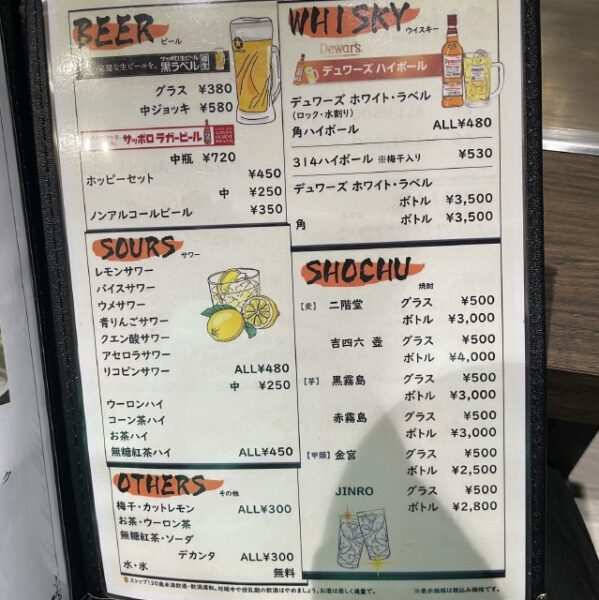 BEER ビール
サッポロ生ビール
黒ラベル
グラス ¥380
中ジョッキ ¥580
サッポロ ラガービール
中瓶 ¥720
ホッピーセット ¥450
中 ¥250
ノンアルコールビール ¥350
WHISKY ウイスキー
Dewar's
デュワーズ ハイボール
デュワーズ ホワイト・ラベル
(ロック・水割り)
角ハイボール ALL¥480
314ハイボール ※梅干入り ¥530
デュワーズ ホワイト・ラベル
ボトル ¥3,500
角 ボトル ¥3,500
SOURS サワー
レモンサワー
バイスサワー
ウメサワー
青りんごサワー
クエン酸サワー
アセロラサワー
リコピンサワー ALL¥480
中 ¥250
ウーロンハイ
コーン茶ハイ
お茶ハイ
無糖紅茶ハイ ALL¥450
SHOCHU 焼酎
【麦】 二階堂 グラス ¥500
ボトル ¥3,000
吉四六 壺 グラス ¥500
ボトル ¥4,000
【芋】 黒霧島 グラス ¥500
ボトル ¥3,000
赤霧島 グラス ¥500
ボトル ¥3,000
【甲類】 金宮 グラス ¥500
ボトル ¥2,500
JINRO グラス ¥500
ボトル ¥2,800
OTHERS その他
梅干・カットレモン ALL¥300
お茶・ウーロン茶
無糖紅茶・ソーダ
デカンタ ALL¥300
水・氷 無料
ストップ!20歳未満飲酒・飲酒運転。妊娠中や授乳期の飲酒はやめましょう。お酒は楽しく適量で。
※表示価格は税込み価格です。